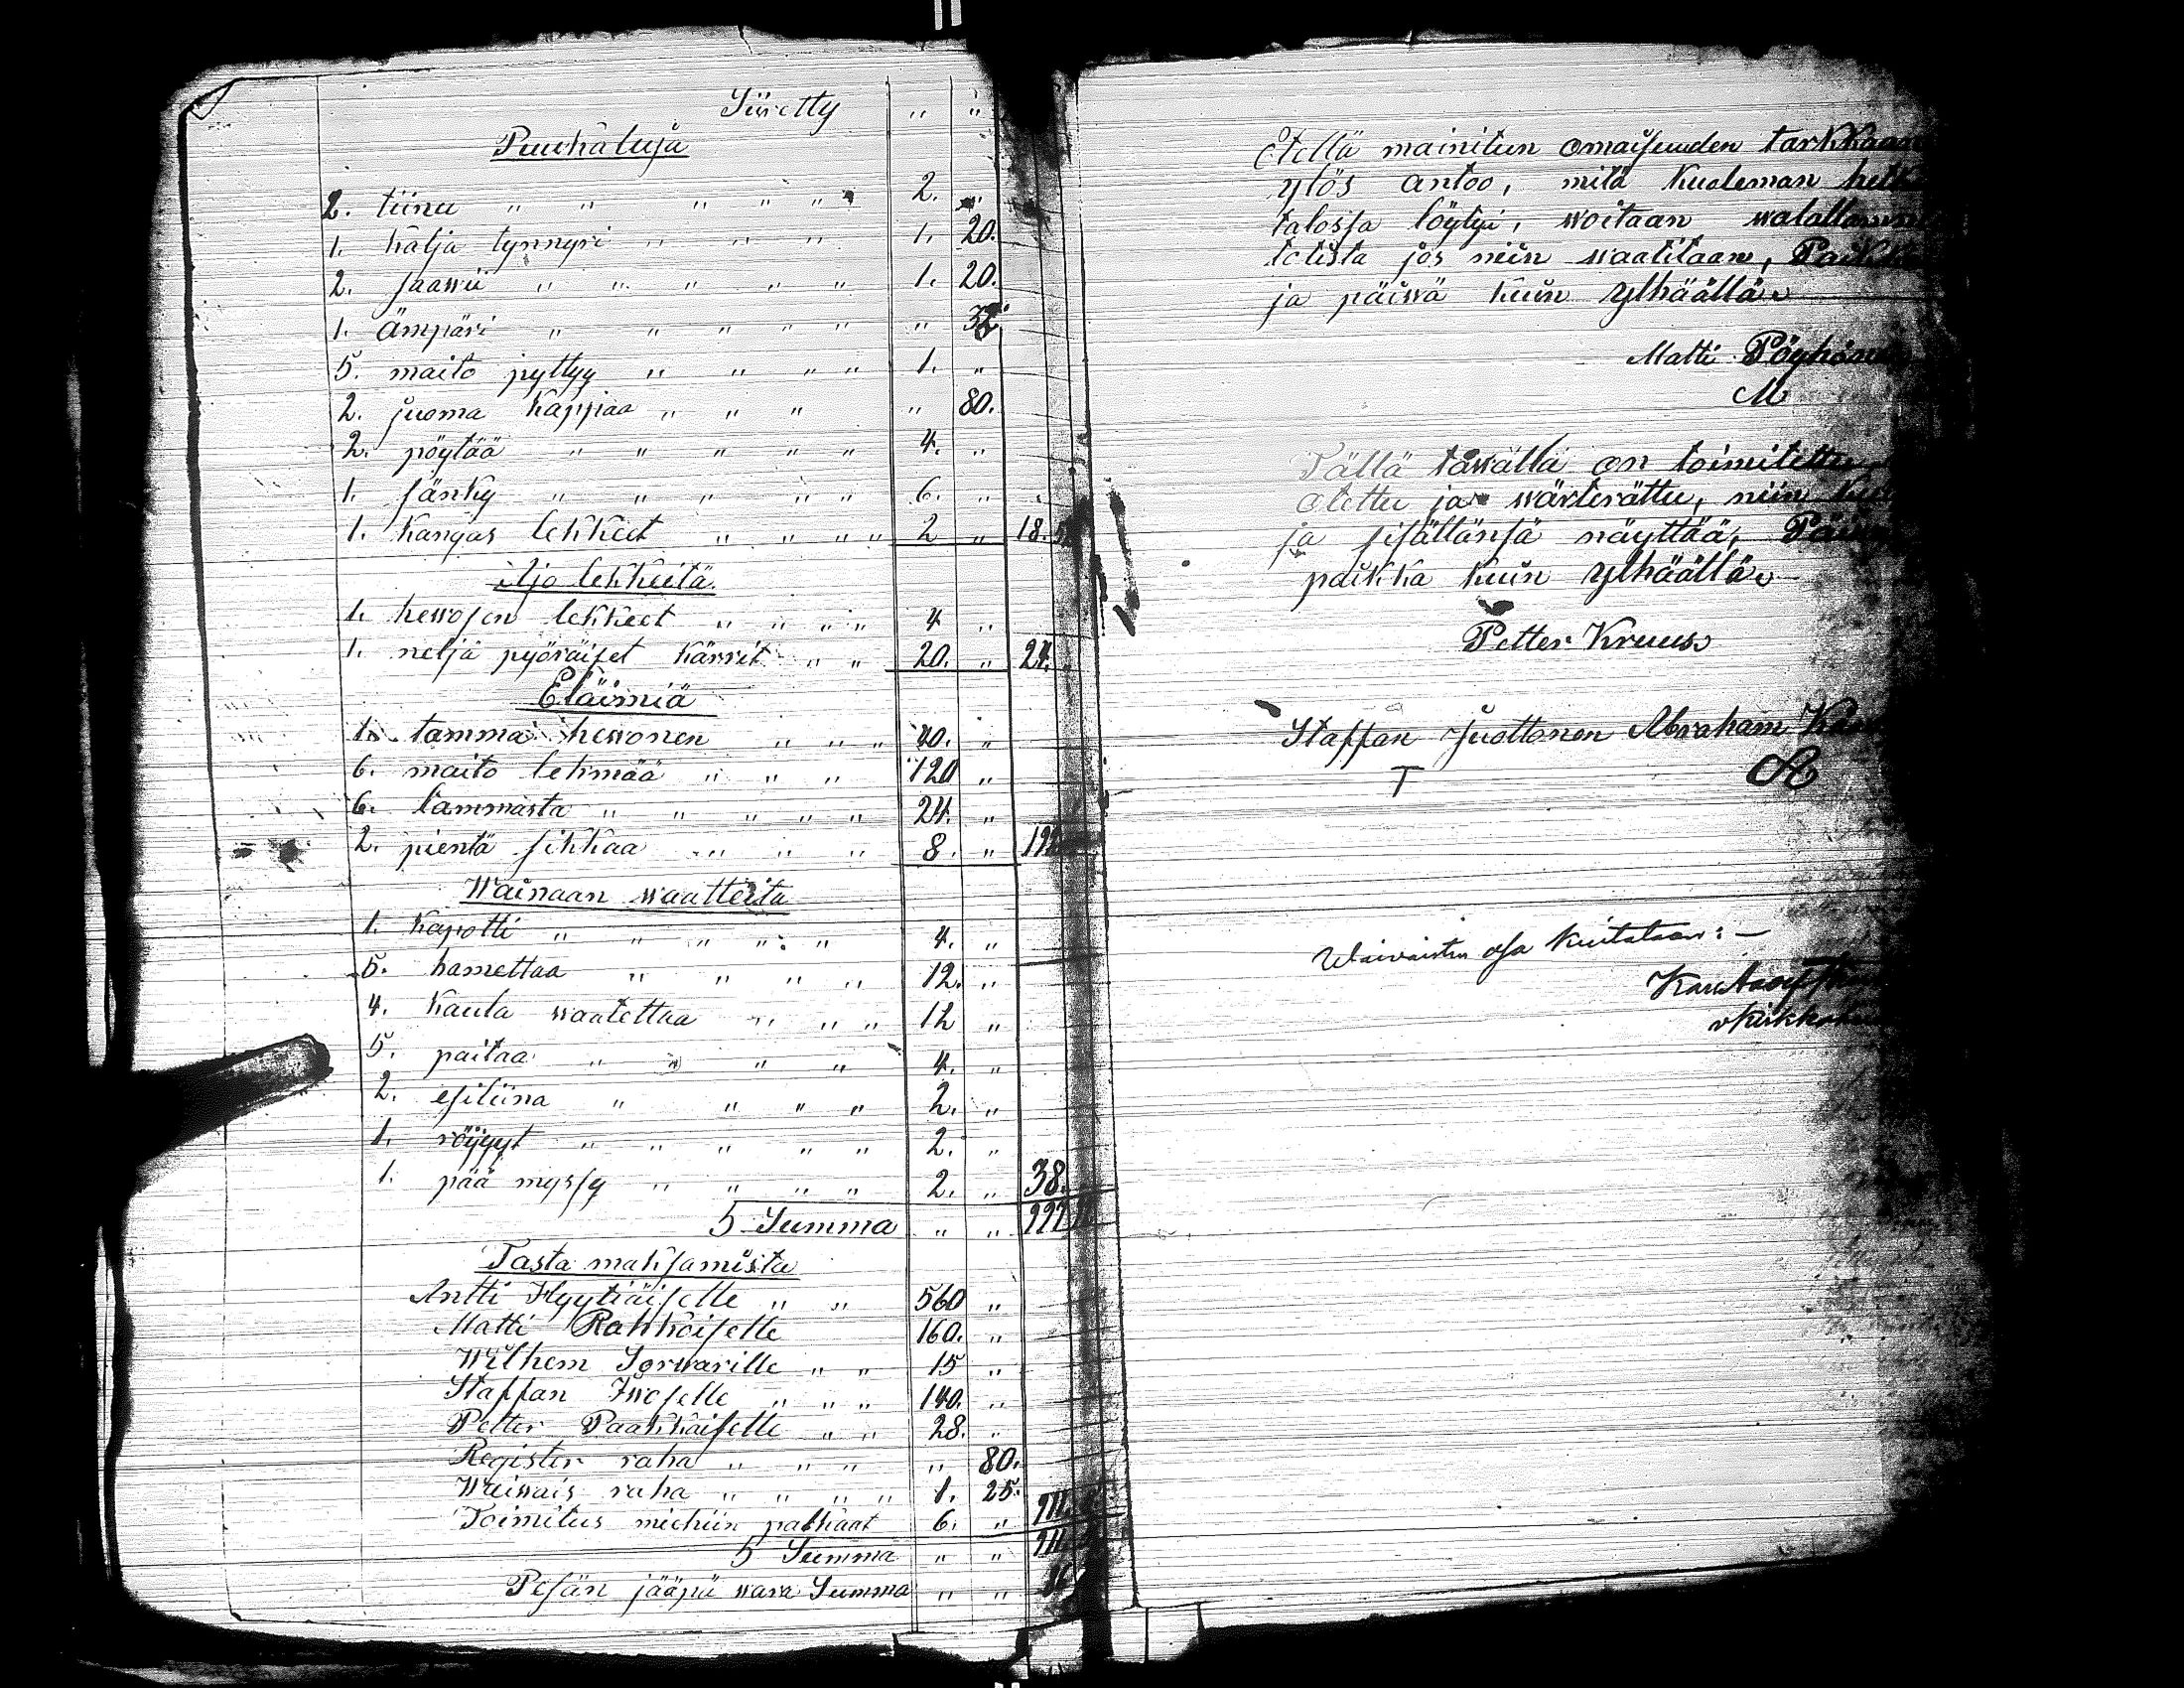 Siiretty " "
Puukaluja
2. tiinu " " " " " 2. "
1. kalja tynnyri " " " 1. 20.
2. saavii " " " " " 1. 20.
1. ämpäri " " " " " " 32
5. maito pyttyy " " " " 1. "
2. juoma kappaa " " " " 80.
2. pöytää " " " " " 4. "
1. sänky " " " " " 6. "
1. kangas lekkeet " " " " 2 " 18.
Ajo lekkeitä.
1. hewosen lekkeet " " " " 4 "
1. neljä pyöräiset kärrit " " 20. " 24.
Eläimiä
1. tamma hewonen " " " 40. "
6. maito lehmää " " " 120 "
6. lammasta " " " " " 24. "
2. pientä sikkaa " " " 8. " 192
Wainaan waatteita
1. kapotti " " " " " 4. "
5. hamettaa " " " " 12. "
4. kaula waatettaa " " " 12 "
5. paitaa " " " " 4. "
2. esiliina " " " " 2. "
1. röijyyt " " " " " 2. "
1. pää myssy " " " " 2. " 38.
S Summa " "
Tästa maksamista
Antti Hyytiäiselle " " 560 "
Matti Rahkoiselle 160. "
Wilhem Sorwarille " " 15 "
Staffan Iwoselle " " " 140. "
Petter Paakkaiselle " " 28. "
Registen raha " " " " 80.
Waiwais raha " " " " 1. 25.
Toimitus miehiin palkaat 6. "
S Summa " "
Pesän jääpii wara Summa " "
Etellä mainitun omaisuuden
ylös antoo, mitä kuoleman
talossa löytyi, woitaan
totista jos niin waatitaan,
ja päiwä kuin ylhäällä
Matti
M
Tällä tawalla on toimitettu
otettu ja wärterättu, niin
ja sisällänsä näyttää,
paikka kuin ylhäällä
Petter Kruus
Staffan Juottonen Abraham
T A
Waivaisten osa kuitataan: —